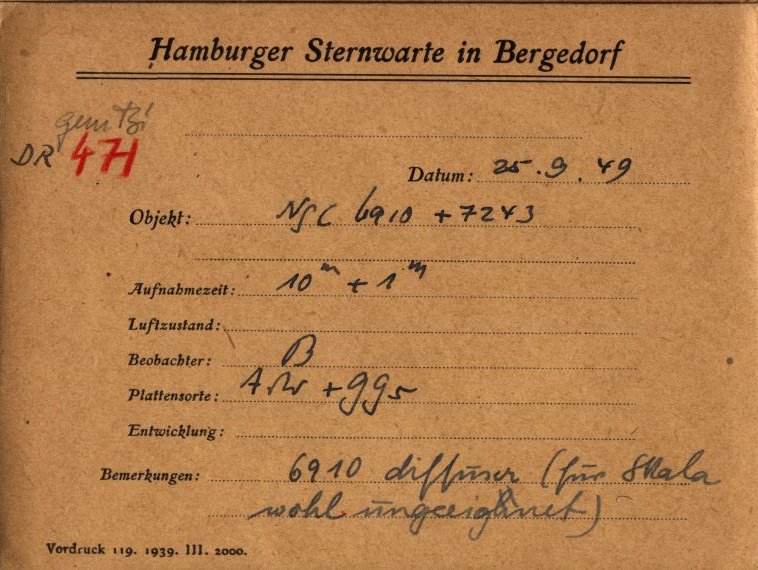 Hamburger Sternwarte in Bergedorf
DR 471
Datum: 25.9.49
Objekt: NGC 6910 + 7243
Aufnahmezeit: 10m + 1m
Luftzustand:
Beobachter: B
Plattensorte: + GG5
Entwicklung:
Bemerkungen: 6910 diffuser (für Skala
wohl ungeeignet)
Vordruck 119. 1939. III. 2000.